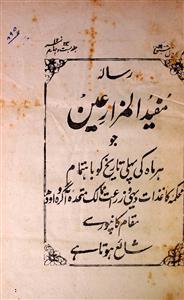 رسالہ
مفید المزارعین
جو
ہر ماہ کی پہلی تاریخ کو باہتمام
محکمہ کاغذات دیہی وزراعت ممالک متحدہ آگرہ واودھ
مقام کانپور سے
شائع ہوتا ہے